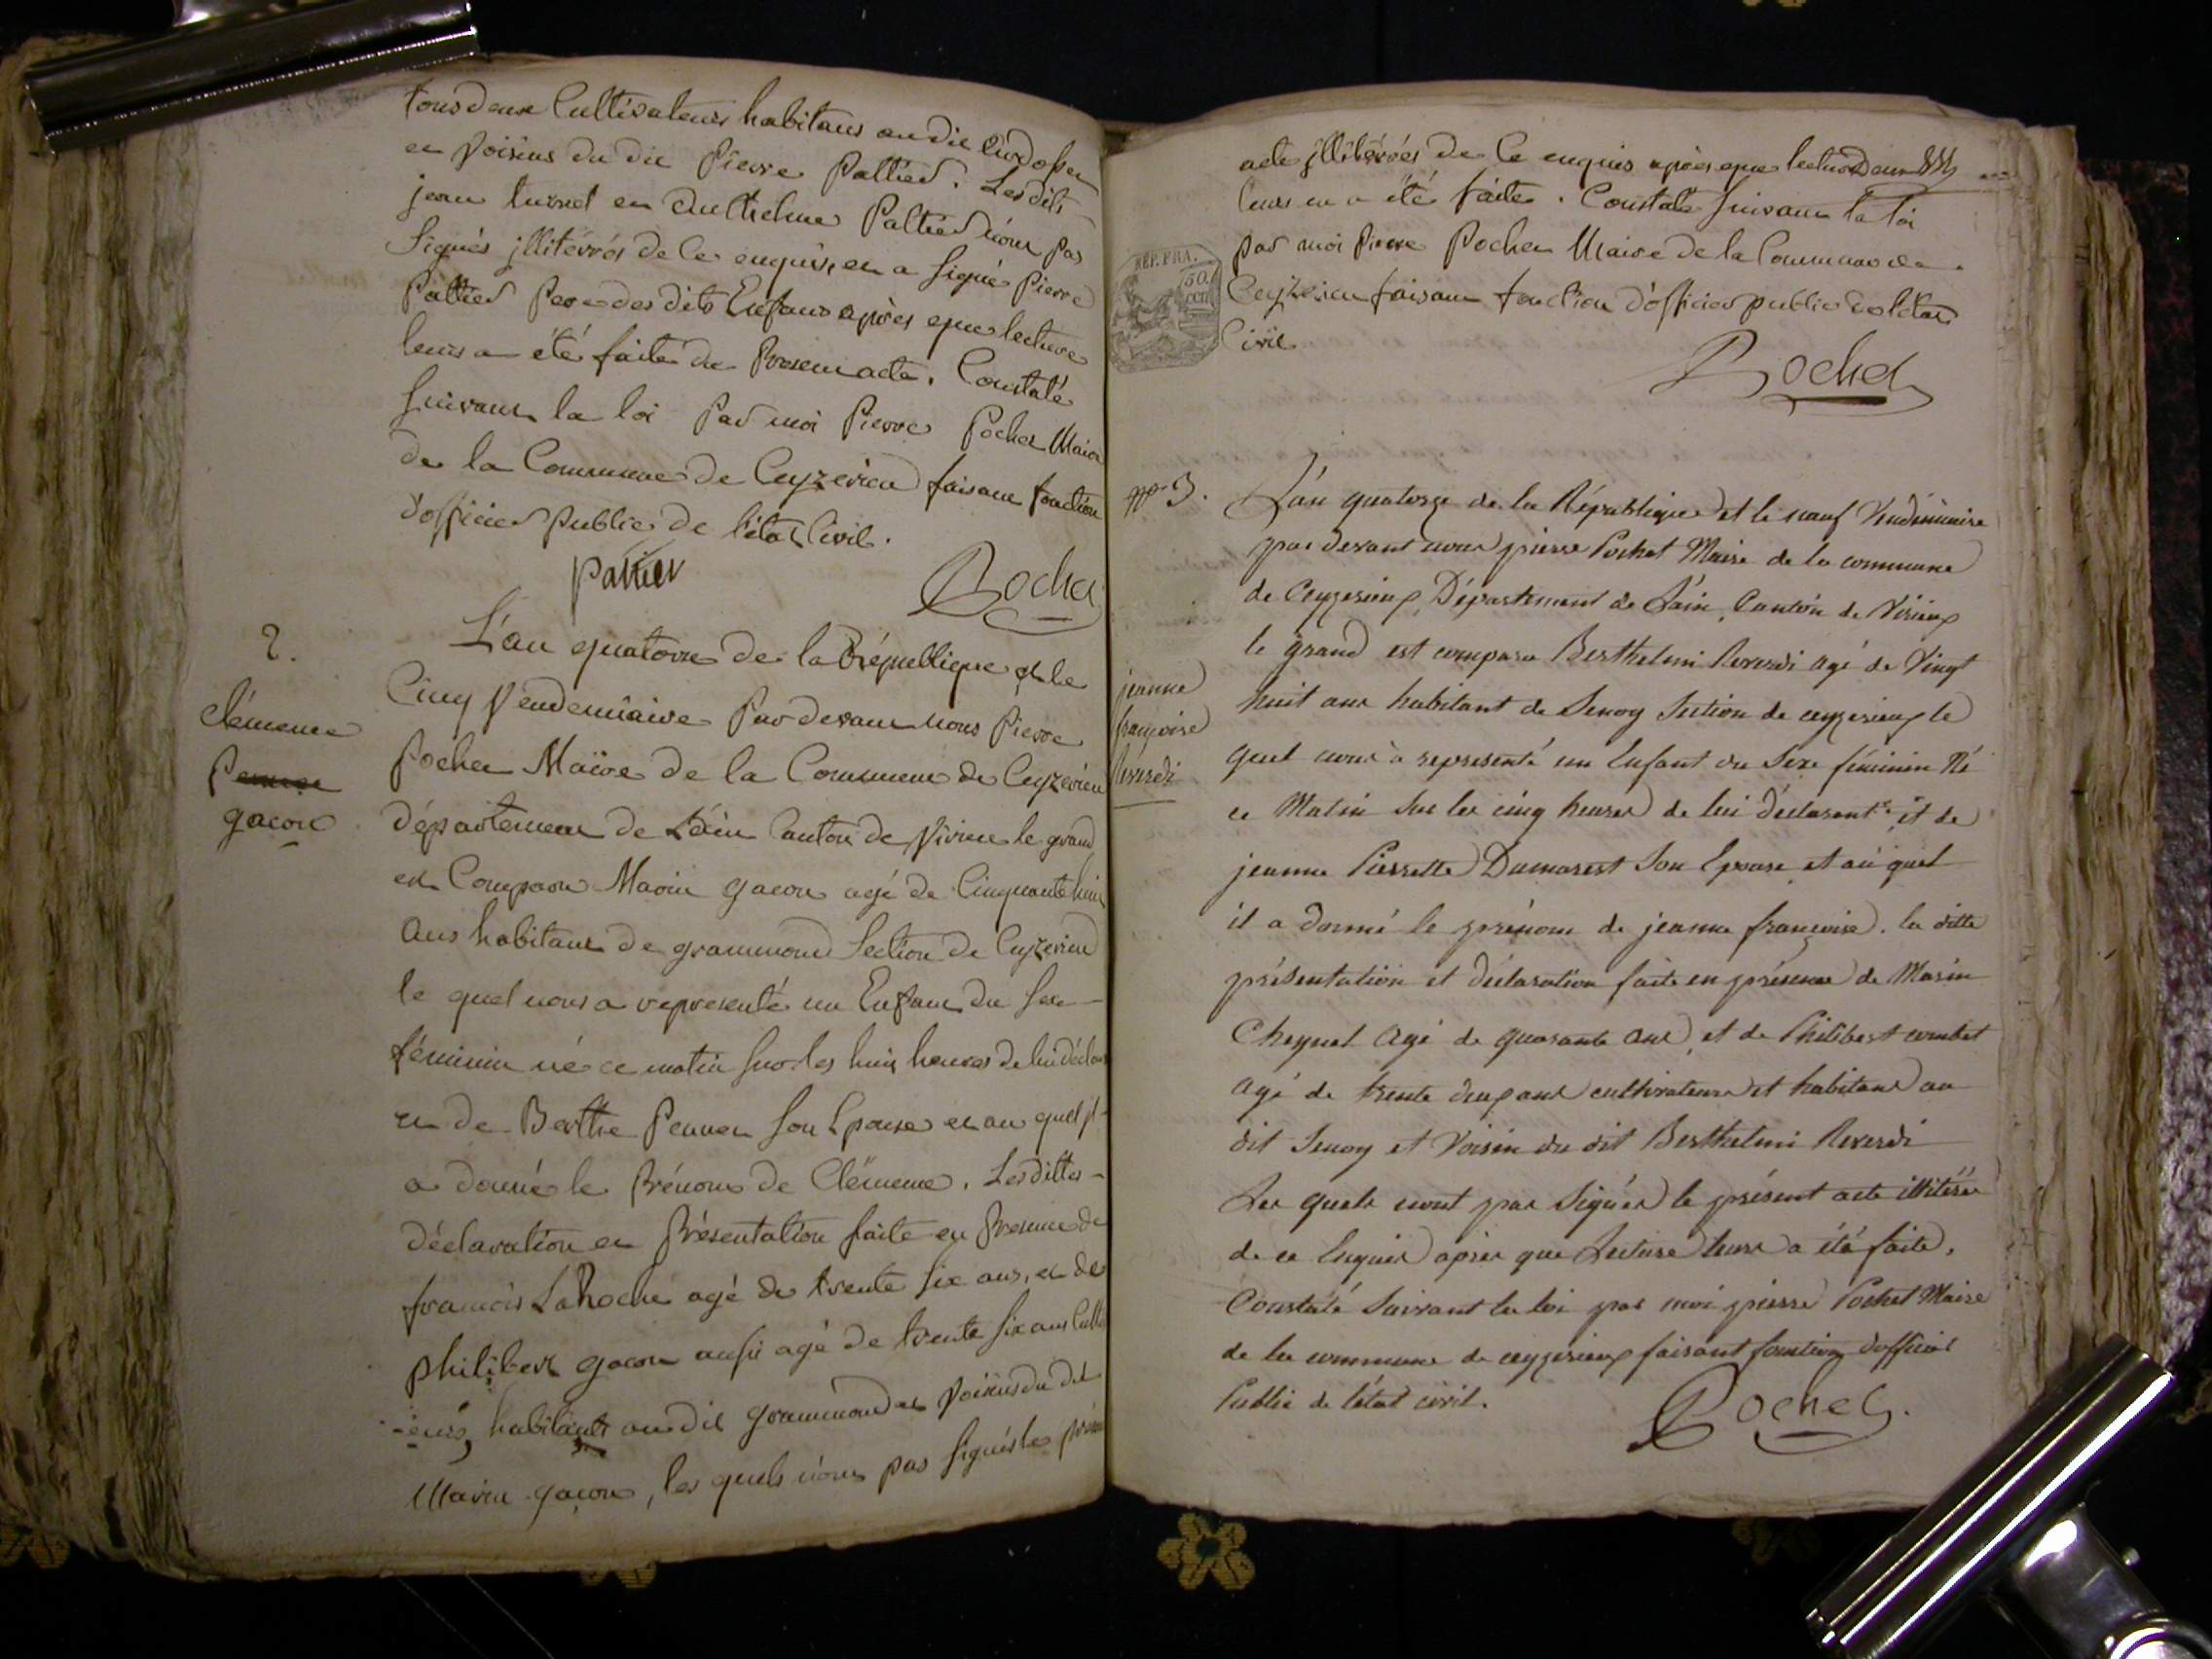 tous deux Cultivateurs habitans au dit
et Voisins du dit Pierre Pattier. Les dits
jean turnet et Anthelme Pattier n'ont pas
Signés jllitérrés de ce enquis, et a signé Pierre
Pattier Pere des dits Enfans après que lecture
leurs a été faite du Present acte. Constaté
suivant la loi Par moi Pierre Pochet Maire
de la Commune de Ceyzerieu faisant fonction
d'officier Public de l'état Civil.
Pattier
Pochet
2.
L'an quatorze de la République et le
Cinq Vendemiaire Par devant nous Pierre
Clémence
Pochet Maire de la Commune de Ceyzerieu
gacon
département de L'ain Canton de Virieu le grand
est Comparu Marin gacon agé de Cinquante huit
Ans habitant de grammond Section de Ceyzerieu
le quel nous a representé un Enfant du sexe
féminin né ce matin sur les huit heures de lui déclarant
et de Berthe Pennet son Epouse et au quel jl
a donné le Prénom de Clémence. Les dittes
déclaration et Présentation faite en Presence de
francois LaRoche agé de trente six ans, et de
philibert gacon aussi agé de trente six ans Cultivat
-eurs habitants au dit grammond et Voisins du dit
Marin gacon, les quels n'ont pas signés le présent
acte jllitérés de Ce enquis après que lecture
leurs en a été faite. Constaté suivant la loi
par moi Pierre Pochet Maire de la Commune de
REP. FRA.
50.
cen
Ceyzerieu faisant fonction d'officier public de l'état
Civil
Pochet
3.
L'an quatorze de la République et le neuf Vendémiaire
par devant nous pierre Pochet Maire de la commune
de Ceyzerieux Département de L'ain, Canton de Virieux
le grand est comparu Berthelmi Reverdi agé de Vingt
jeanne
françoise
Reverdi
huit ans habitant de Senoy Section de ceyzerieux le
quel nous à représenté un Enfant du Sexe féminin Né
ce Matin Sur les cinq heures de lui déclarant et de
jeanne Pierrette Dumarest Son Epouse et au quel
il a donné le prénom de jeanne françoise. la ditte
présentation et déclaration faite en présence de Marin
Cheynet agé de quarante ans, et de Philibert combet
agé de trente deux ans cultivateurs et habitans au
dit Senoy et Voisin du dit Berthelmi Reverdi
Les quels n'ont pas Signés le présent acte illitérés
de ce Enquis après que Lecture leurs a été faite.
Constaté Suivant la loi par moi pierre Pochet Maire
de la commune de ceyzerieux faisant fonction d'officier
Public de l'état civil.
Pochet.